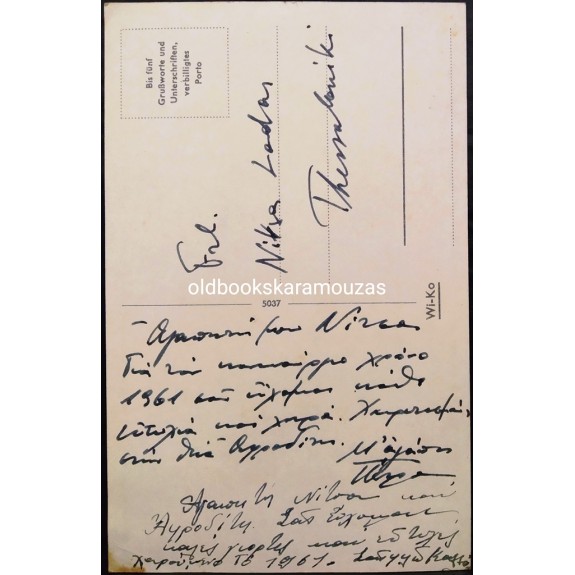 Bis fünf
Grußworte und
Unterschriften,
verbilligtes
Porto
Frl.
Nitsa Ladas
Thessaloniki
oldbookskaramouzas
5037
Wi-Ko
Ἀγαπητή μου Νίτσα
Γιά τόν καινούργιο χρόνο
1961 σοῦ εὔχομαι κάθε
εὐτυχία καί χαρά. Χαιρετισμούς
στήν θεία Ἀφροδίτη. Μ' ἀγάπη
Ἀγαπητή Νίτσα καί
Ἀφροδίτη Σᾶς εὔχομαι
καλές γιορτές καί εὐτυχές
χαρούμενο τό 1961.